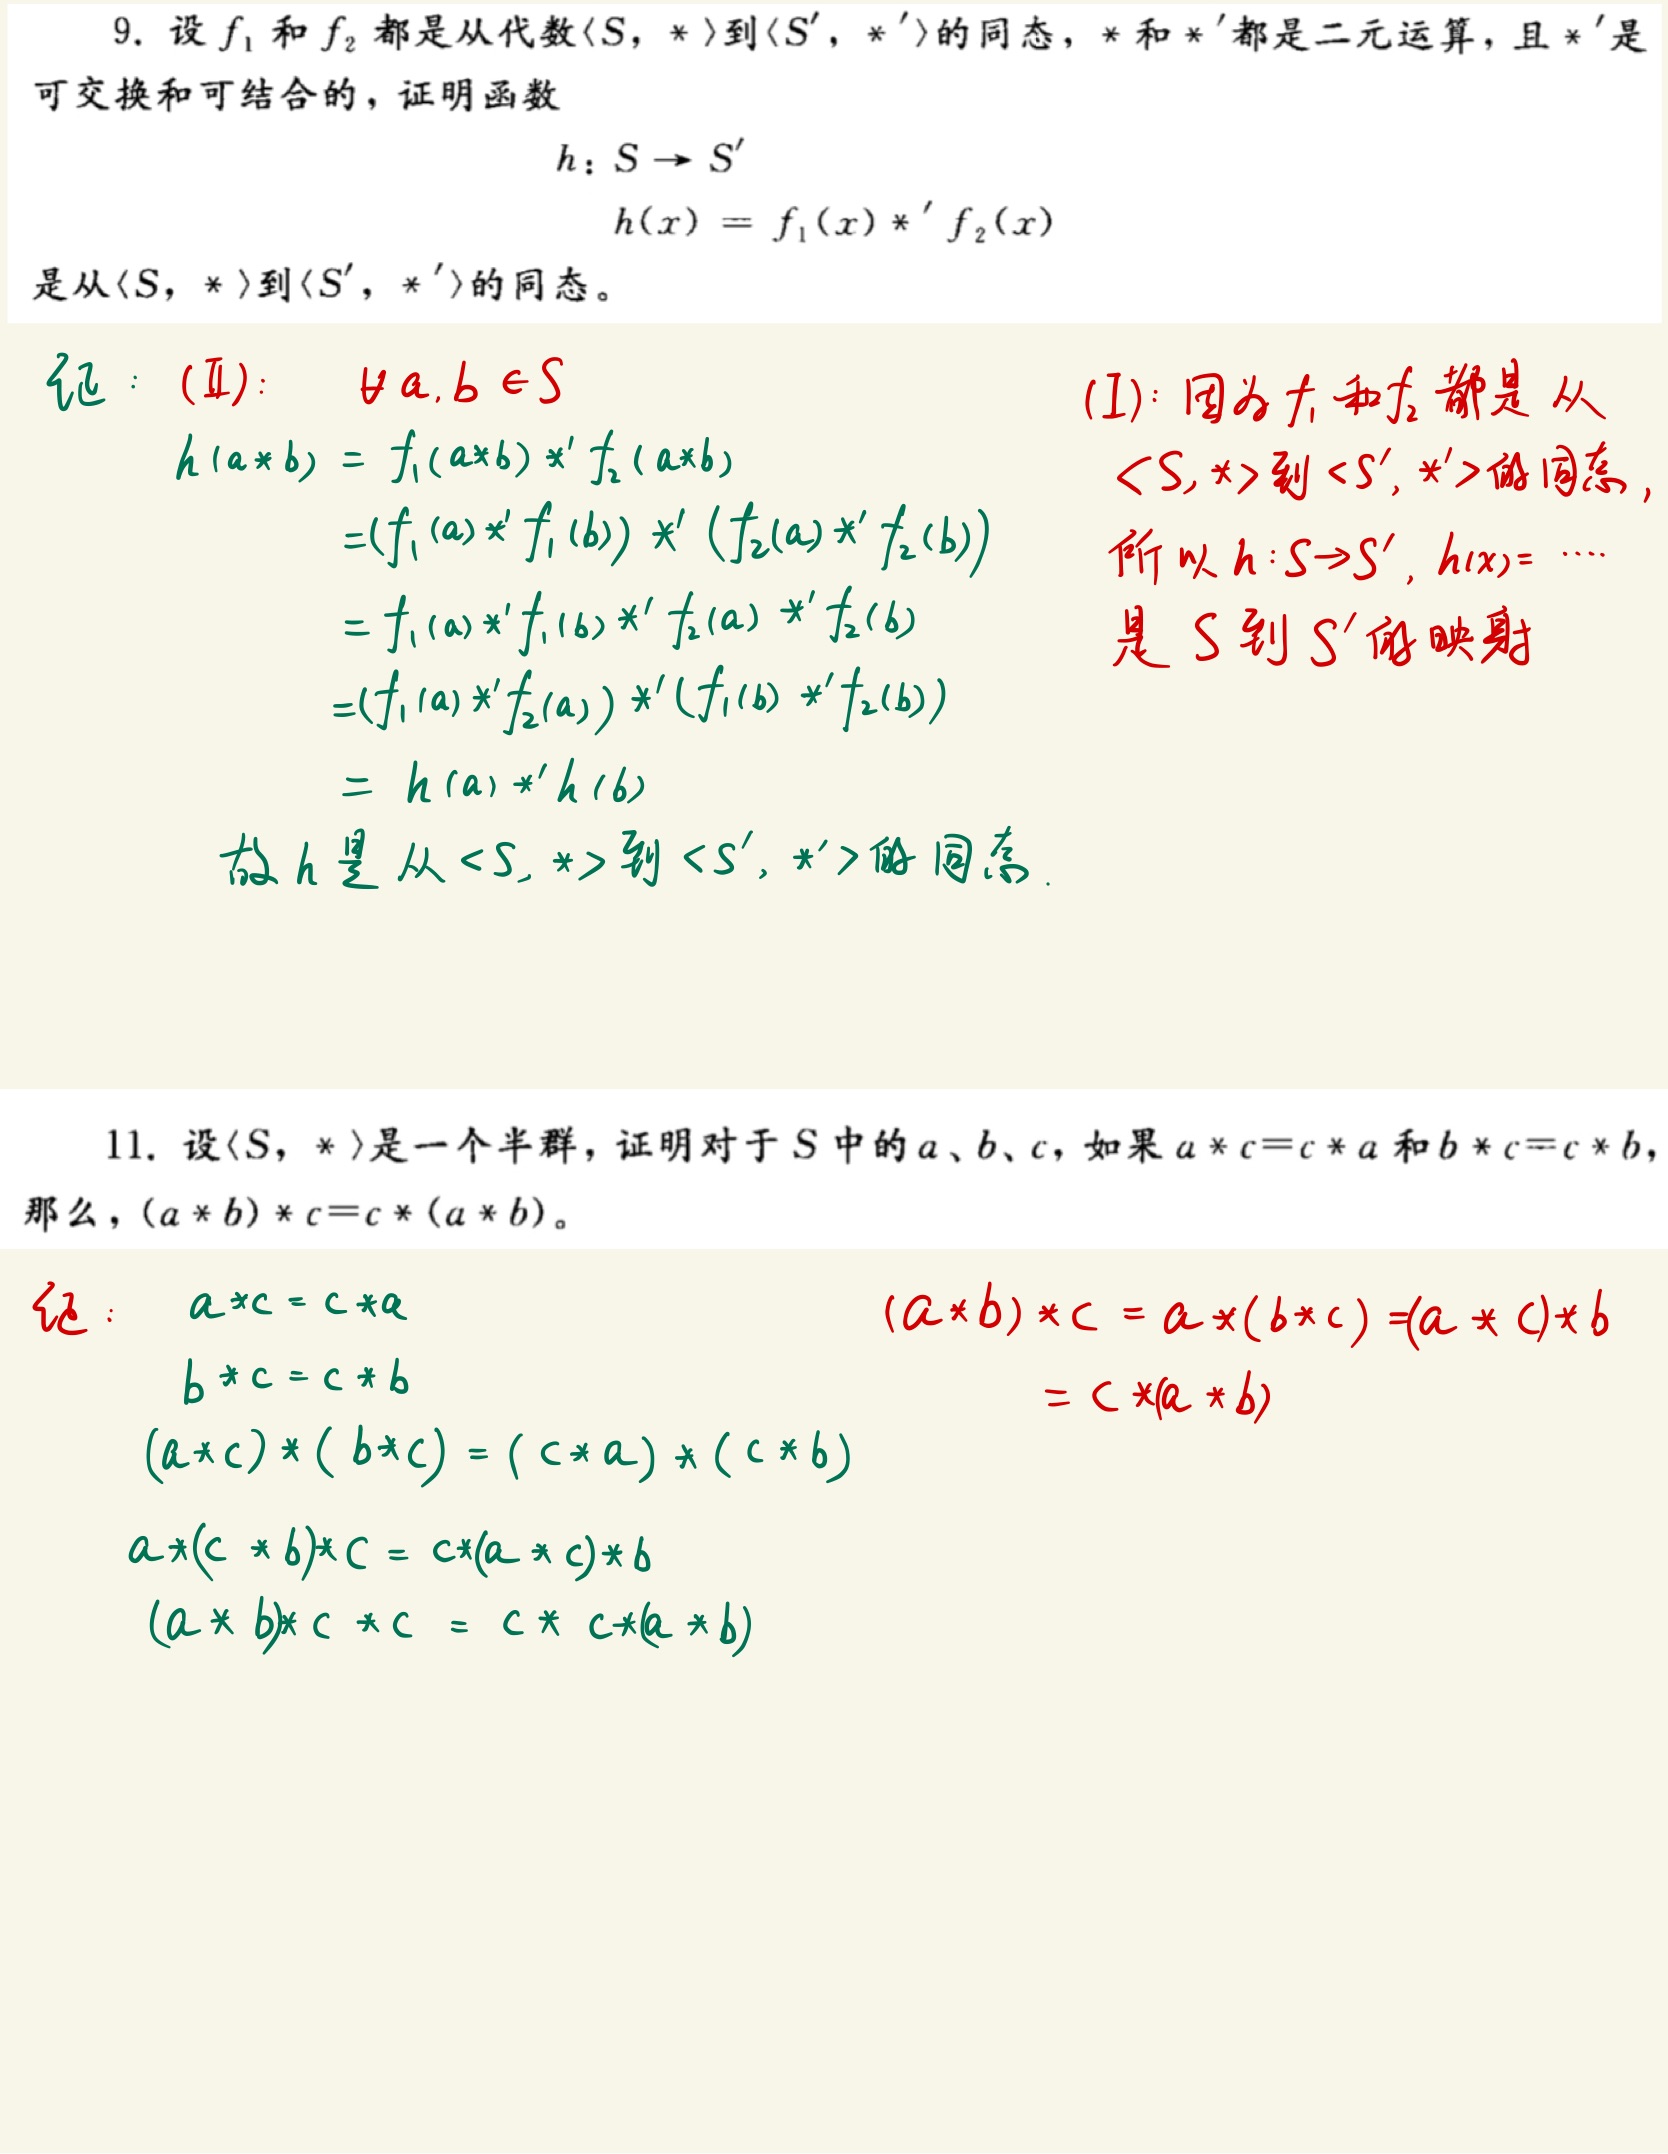 9. 设 f₁ 和 f₂ 都是从代数〈S, *〉到〈S′, *′〉的同态, * 和 *′都是二元运算, 且 *′是
可交换和可结合的, 证明函数
h: S → S′
h(x) = f₁(x) *′ f₂(x)
是从〈S, *〉到〈S′, *′〉的同态。
证: (Ⅱ): ∀a.b∈S
h(a*b) = f₁(a*b) *′ f₂(a*b)
=(f₁(a) *′ f₁(b)) *′ (f₂(a) *′ f₂(b))
= f₁(a) *′ f₁(b) *′ f₂(a) *′ f₂(b)
=(f₁(a) *′ f₂(a)) *′ (f₁(b) *′ f₂(b))
= h(a) *′ h(b)
故 h 是 从 <S, *> 到 <S′, *′> 的 同 态.
(Ⅰ): 因为 f₁ 和 f₂ 都是 从
<S, *> 到 <S′, *′> 的同态,
所以 h:S→S′, h(x)= ····
是 S 到 S′ 的映射
11. 设〈S, *〉是一个半群, 证明对于 S 中的 a、b、c, 如果 a * c=c * a 和 b * c=c * b,
那么, (a * b) * c=c * (a * b)。
证: a*c = c*a
b*c = c*b
(a*c)*(b*c) = (c*a)*(c*b)
a*(c*b)*c = c*(a*c)*b
(a*b)*c*c = c* c*(a*b)
(a*b)*c = a*(b*c) =(a*c)*b
= c*(a*b)